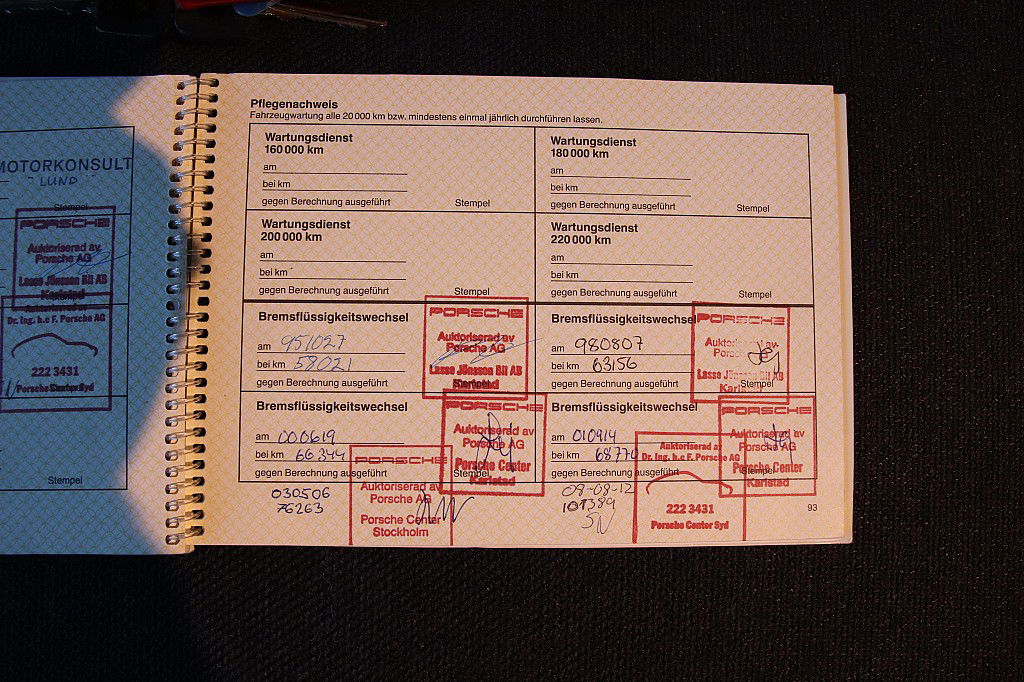 MOTORKONSULT
LUND
Stempel
PORSCHE
Auktoriserad av
Porsche AG
Lasse Jönsson Bil AB
Karlstad
Auktoriserad av
Dr. Ing. h.c F. Porsche AG
222 3431
Porsche Center Syd
Stempel
Pflegenachweis
Fahrzeugwartung alle 20 000 km bzw. mindestens einmal jährlich durchführen lassen.
Wartungsdienst
160 000 km
am
bei km
gegen Berechnung ausgeführt Stempel
Wartungsdienst
180 000 km
am
bei km
gegen Berechnung ausgeführt Stempel
Wartungsdienst
200 000 km
am
bei km
gegen Berechnung ausgeführt Stempel
Wartungsdienst
220 000 km
am
bei km
gegen Berechnung ausgeführt Stempel
Bremsflüssigkeitswechsel
am 951027
bei km 58021
gegen Berechnung ausgeführt
PORSCHE
Auktoriserad av
Porsche AG
Lasse Jönsson Bil AB
Karlstad
Bremsflüssigkeitswechsel
am 980807
bei km 63156
gegen Berechnung ausgeführt Stempel
PORSCHE
Auktoriserad av
Porsche AG
Lasse Jönsson Bil AB
Karlstad
Bremsflüssigkeitswechsel
am 000619
bei km 66344
gegen Berechnung ausgeführt Stempel
PORSCHE
Auktoriserad av
Porsche AG
Porsche Center
Karlstad
Bremsflüssigkeitswechsel
am 010914
bei km 68770
gegen Berechnung ausgeführt Stempel
PORSCHE
Auktoriserad av
Porsche AG
Porsche Center
Karlstad
030506
76263
PORSCHE
Auktoriserad av
Porsche AG
Porsche Center
Stockholm
08-08-12
101389
Auktoriserad av
Dr. Ing. h.c F. Porsche AG
222 3431
Porsche Center Syd
93